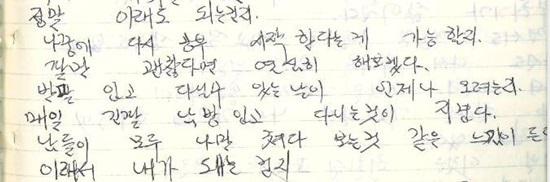 정말 이래도 되는건지.
나중에 다시 공부 시작 한다는게 가능 할지.
정말 괜찮다면 열심히 해보겠다.
반팔 입고 다닐수 있는 날이 언제나 오려는지.
매일 긴팔 입고 다니는것이 지겹다.
남들이 모두 나만 쳐다 보는것 같은 느낌이 든
이래서 내가 되는 건지